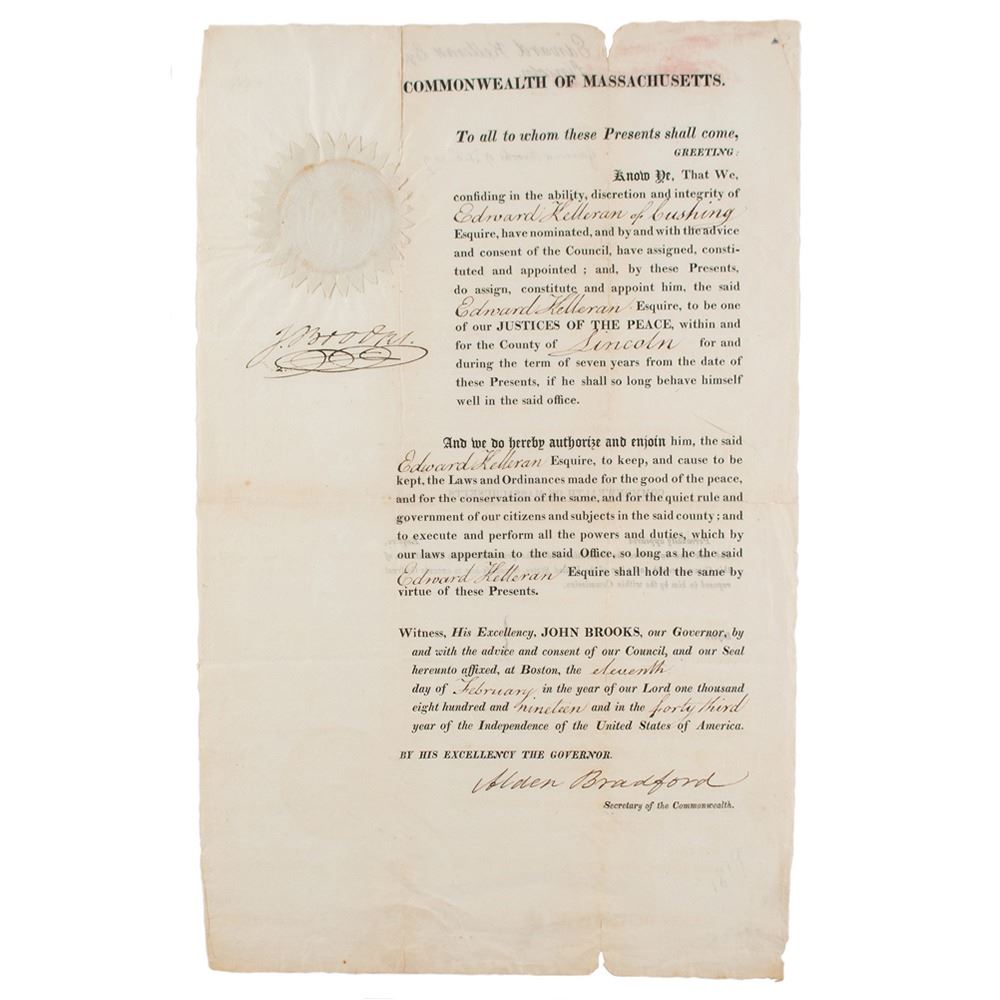 COMMONWEALTH OF MASSACHUSETTS.
To all to whom these Presents shall come,
GREETING:
Know Ye, That We,
confiding in the ability, discretion and integrity of
Edward Kelleran of Cushing
Esquire, have nominated, and by and with the advice
and consent of the Council, have assigned, consti-
tuted and appointed ; and, by these Presents,
do assign, constitute and appoint him, the said
Edward Kelleran Esquire, to be one
of our JUSTICES OF THE PEACE, within and
for the County of Lincoln for and
during the term of seven years from the date of
these Presents, if he shall so long behave himself
well in the said office.
J. Brooks.
And we do hereby authorize and enjoin him, the said
Edward Kelleran Esquire, to keep, and cause to be
kept, the Laws and Ordinances made for the good of the peace,
and for the conservation of the same, and for the quiet rule and
government of our citizens and subjects in the said county ; and
to execute and perform all the powers and duties, which by
our laws appertain to the said Office, so long as he the said
Edward Kelleran Esquire shall hold the same by
virtue of these Presents.
Witness, His Excellency, JOHN BROOKS, our Governor, by
and with the advice and consent of our Council, and our Seal
hereunto affixed, at Boston, the eleventh
day of February in the year of our Lord one thousand
eight hundred and nineteen and in the forty third
year of the Independence of the United States of America.
BY HIS EXCELLENCY THE GOVERNOR.
Alden Bradford
Secretary of the Commonwealth.